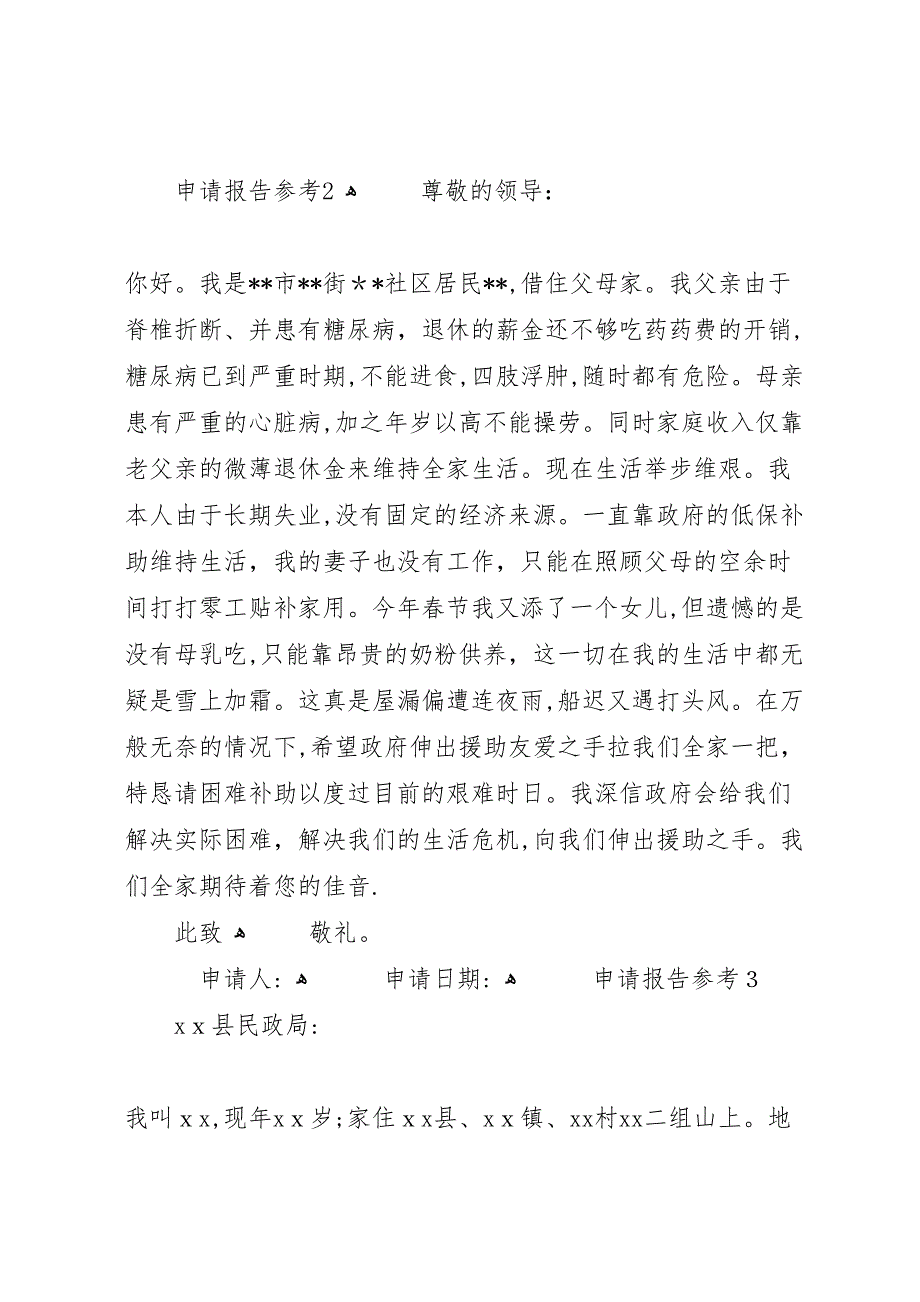 申请报告参考2 ﻫ 尊敬的领导：
你好。我是**市**街＊*社区居民**,借住父母家。我父亲由于
脊椎折断、并患有糖尿病，退休的薪金还不够吃药药费的开销,
糖尿病已到严重时期,不能进食,四肢浮肿,随时都有危险。母亲
患有严重的心脏病,加之年岁以高不能操劳。同时家庭收入仅靠
老父亲的微薄退休金来维持全家生活。现在生活举步维艰。我
本人由于长期失业,没有固定的经济来源。一直靠政府的低保补
助维持生活，我的妻子也没有工作，只能在照顾父母的空余时
间打打零工贴补家用。今年春节我又添了一个女儿,但遗憾的是
没有母乳吃,只能靠昂贵的奶粉供养，这一切在我的生活中都无
疑是雪上加霜。这真是屋漏偏遭连夜雨,船迟又遇打头风。在万
般无奈的情况下,希望政府伸出援助友爱之手拉我们全家一把，
特恳请困难补助以度过目前的艰难时日。我深信政府会给我们
解决实际困难，解决我们的生活危机,向我们伸出援助之手。我
们全家期待着您的佳音.
此致 ﻫ 敬礼。
申请人: ﻫ 申请日期: ﻫ 申请报告参考３
xｘ县民政局:
我叫ｘx,现年xｘ岁;家住ｘx县、xｘ镇、xx村xx二组山上。地